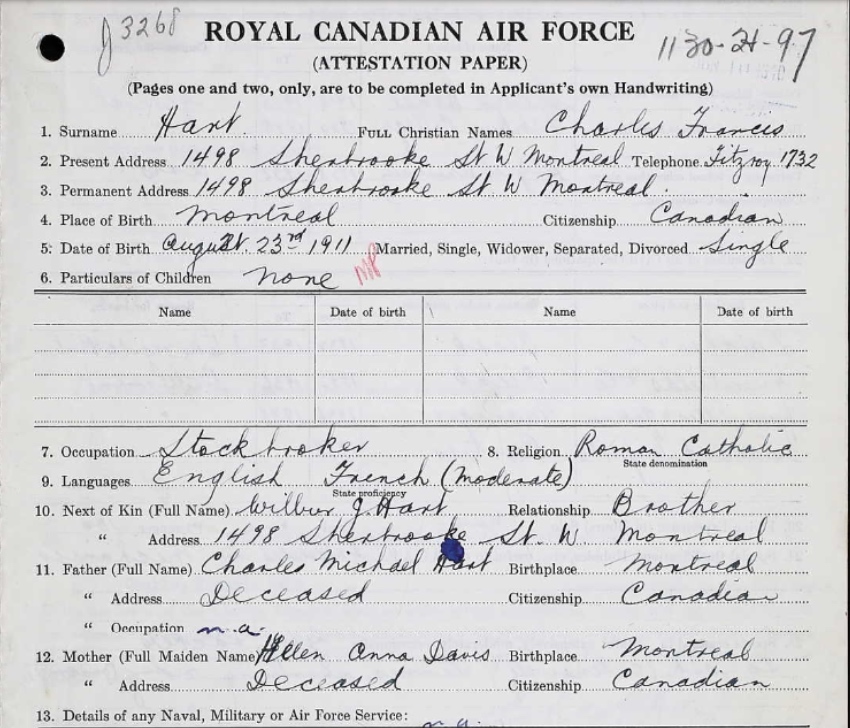 J 3268
ROYAL CANADIAN AIR FORCE
1130-21-97
(ATTESTATION PAPER)
(Pages one and two, only, are to be completed in Applicant's own Handwriting)
1. Surname Hart FULL Christian Names Charles Francis
2. Present Address 1498 Sherbrooke St W Montreal Telephone Fitzroy 1732
3. Permanent Address 1498 Sherbrooke St W Montreal.
4. Place of Birth Montreal Citizenship Canadian
5. Date of Birth August 23rd 1911 Married, Single, Widower, Separated, Divorced Single
6. Particulars of Children None
Name Date of birth Name Date of birth
7. Occupation Stockbroker 8. Religion Roman Catholic
State denomination
9. Languages English French (Moderate)
State proficiency
10. Next of Kin (Full Name) Wilbur J. Hart Relationship Brother
" Address 1498 Sherbrooke St. W Montreal
11. Father (Full Name) Charles Michael Hart Birthplace Montreal
" Address Deceased Citizenship Canadian
" Occupation n.a.
12. Mother (Full Maiden Name) Hellen Anna Davis Birthplace Montreal
" Address Deceased Citizenship Canadian
13. Details of any Naval, Military or Air Force Service: n.a.